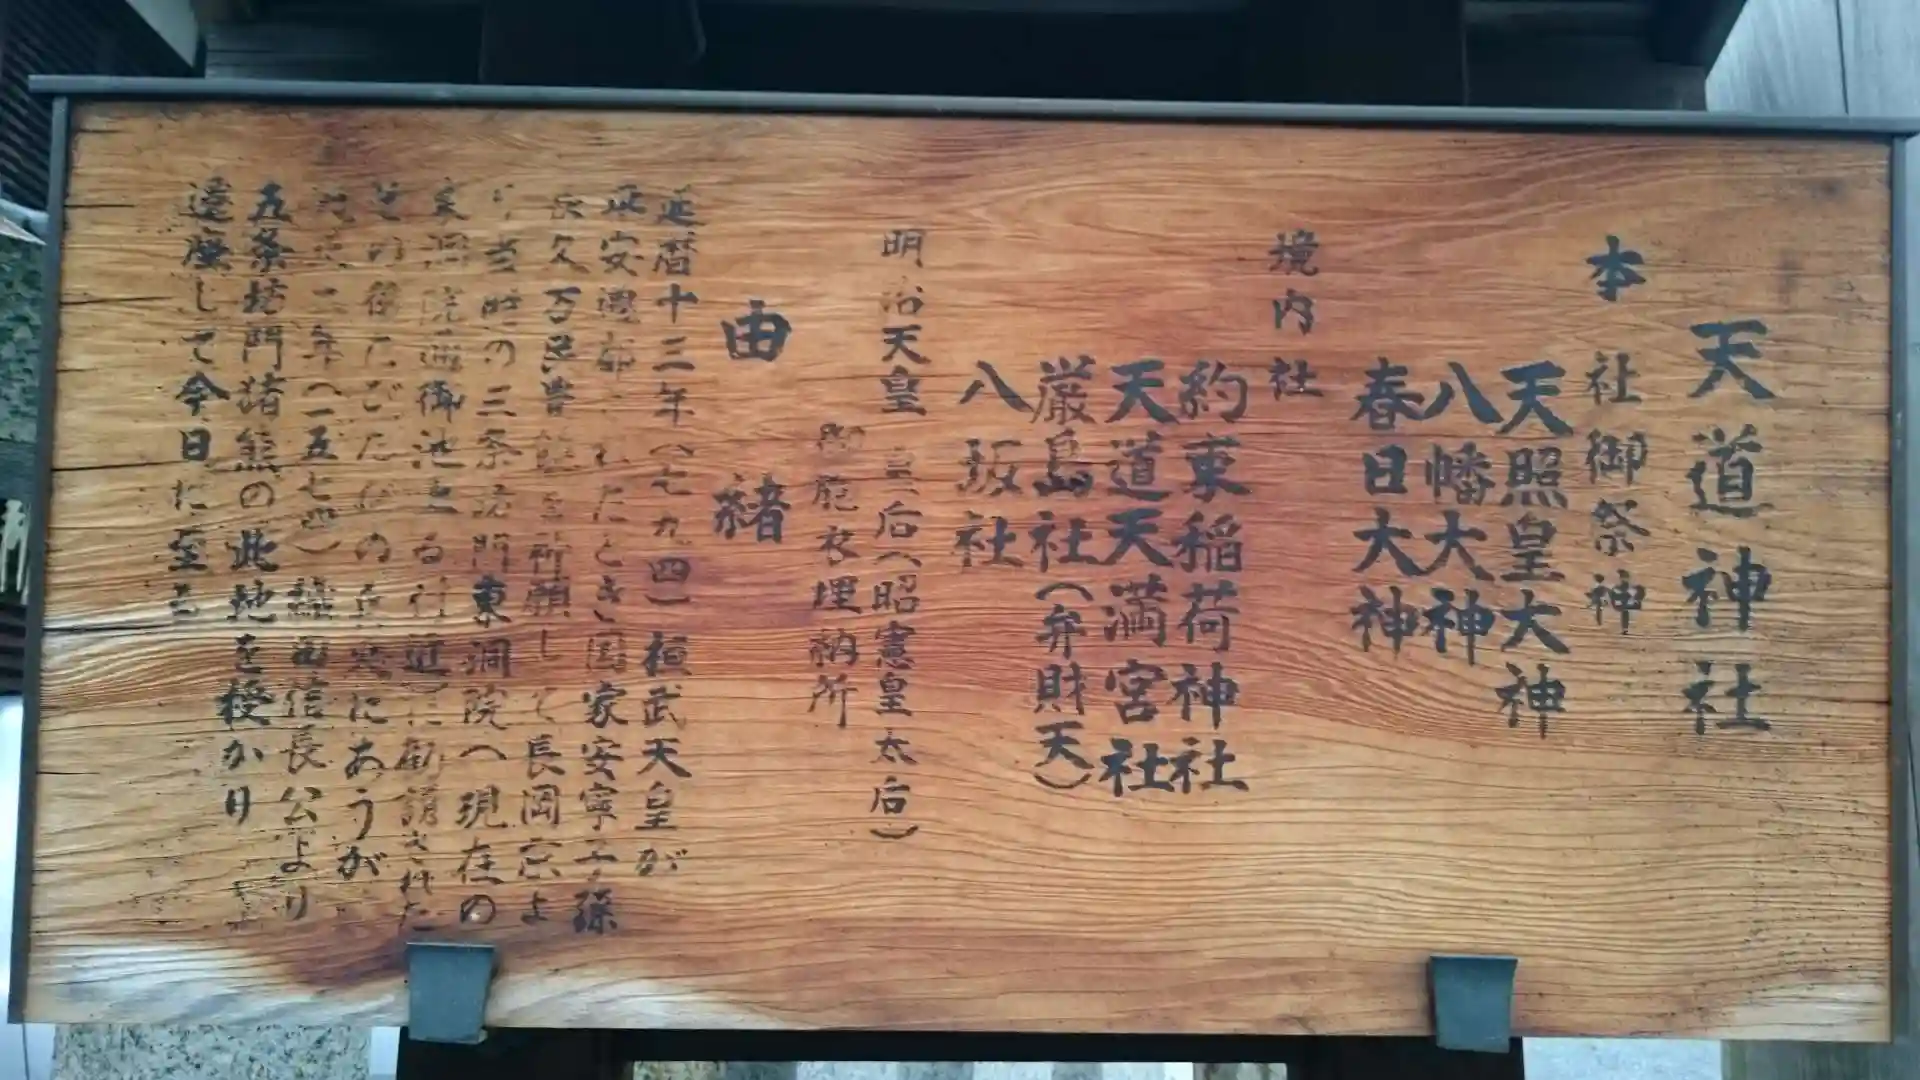 天道神社
本社御祭神
天照皇大神
八幡大神
春日大神
境内社
約束稲荷神社
天道天満宮社
厳島社(弁財天)
八坂社
明治天皇 皇后(昭憲皇太后)
御胞衣埋納所
由緒
延暦十三年(七九四)桓武天皇が
平安遷都されたとき国家安寧子孫
長久万民豊 を祈願して長岡京よ
り当時の三条坊門東洞院へ現在の
東洞院通御池上る 勧請された
その後たびたびの兵火にあうが
天正二年(一五七四)織田信長公より
五条坊門猪熊の此地を授かり
遷座して今日に至る